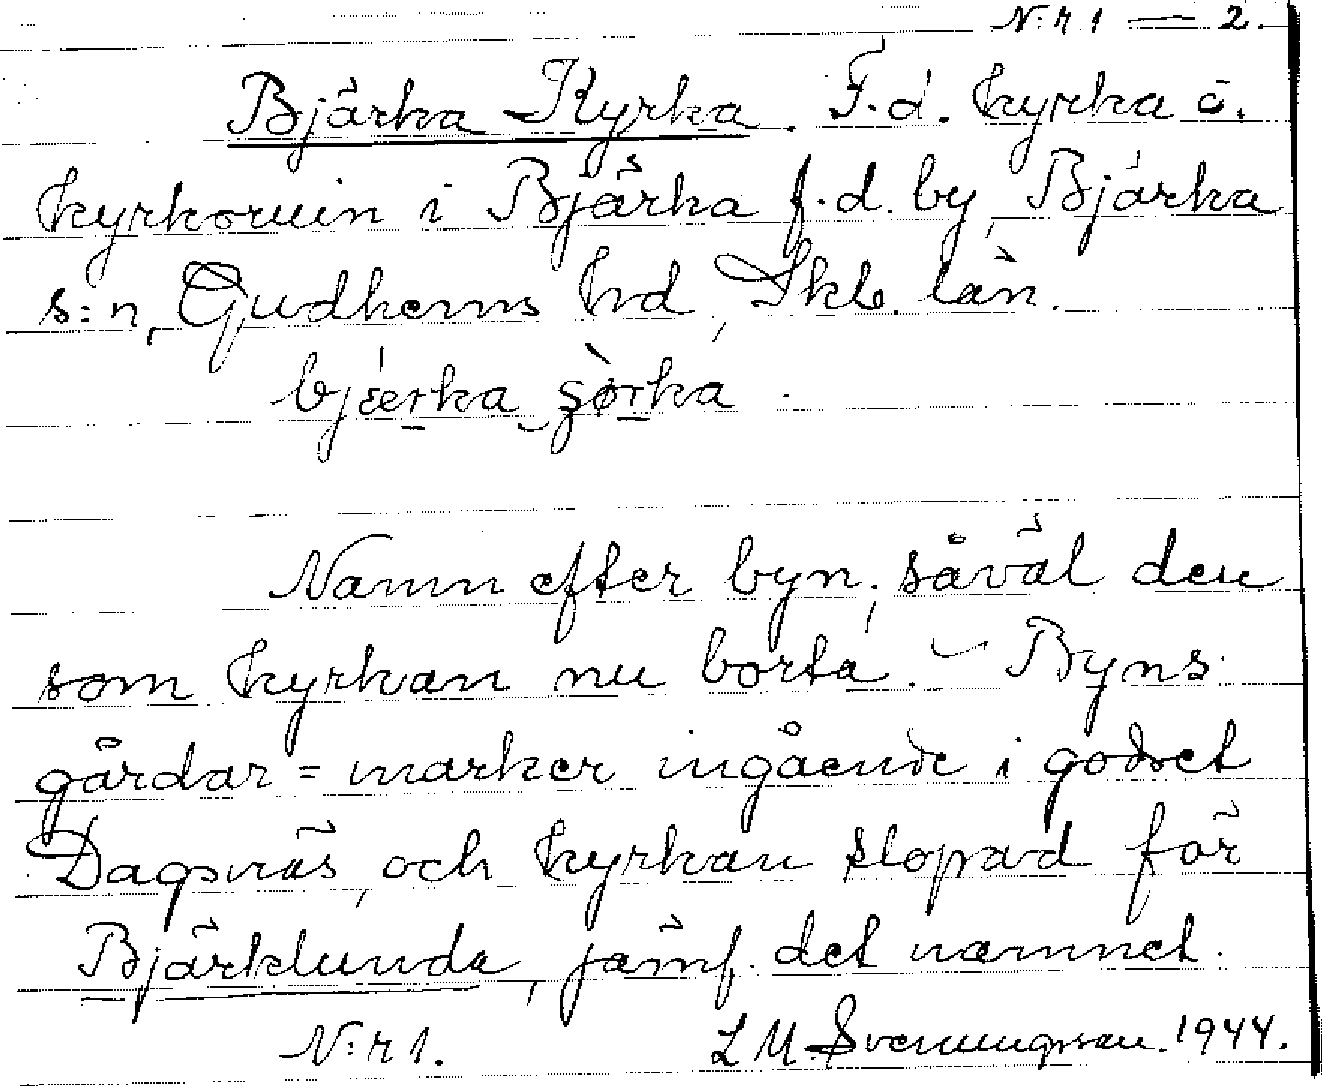 N:r 1 — 2.
Bjärka Kyrka. F.d. kyrka o.
kyrkoruin i Bjärka f.d. by, Bjärka
s:n, Gudhems hd, Skb. län.
bjærka ʂørka.
Namn efter byn; såväl den
som kyrkan nu borta. – Byns
gårdar = marker ingående i godset
Dagsnäs, och kyrkan slopad för
Bjärklunda, jämf. det namnet.
N:r 1. L M. Svenungsson. 1944.